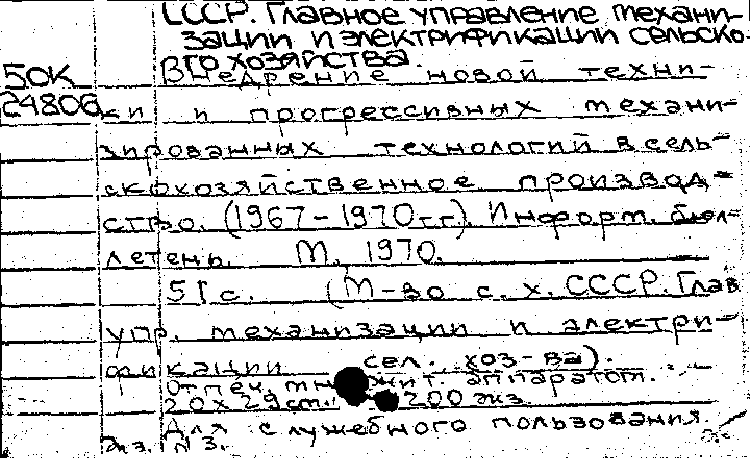 СССР. Главное управление механи-
зации и электрификации сельско-
го хозяйства.
50К
Внедрение новой техни-
24806
ки и прогрессивных механи-
зированных технологий в сель-
скохозяйственное производ-
ство. (1967-1970гг). Информ. бюл-
летень. М, 1970.
51с. (М-во с. х. СССР. Глав
упр. механизации и электри-
фикации сел. хоз-ва).
Отпеч. жит. аппаратом.
20х29см. 200 экз.
Для служебного пользования.
Экз. №3.